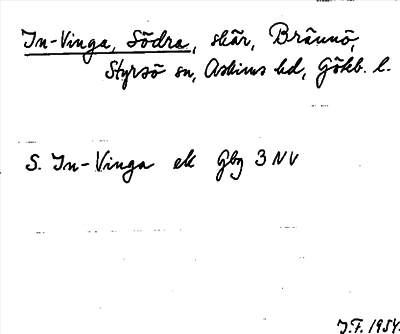 In-Vinga, Södra, skär, Brännö,
Styrsö sn, Askims hd, Götb. l.
S. In-Vinga ek Gbg 3 NV
J.F. 1954.